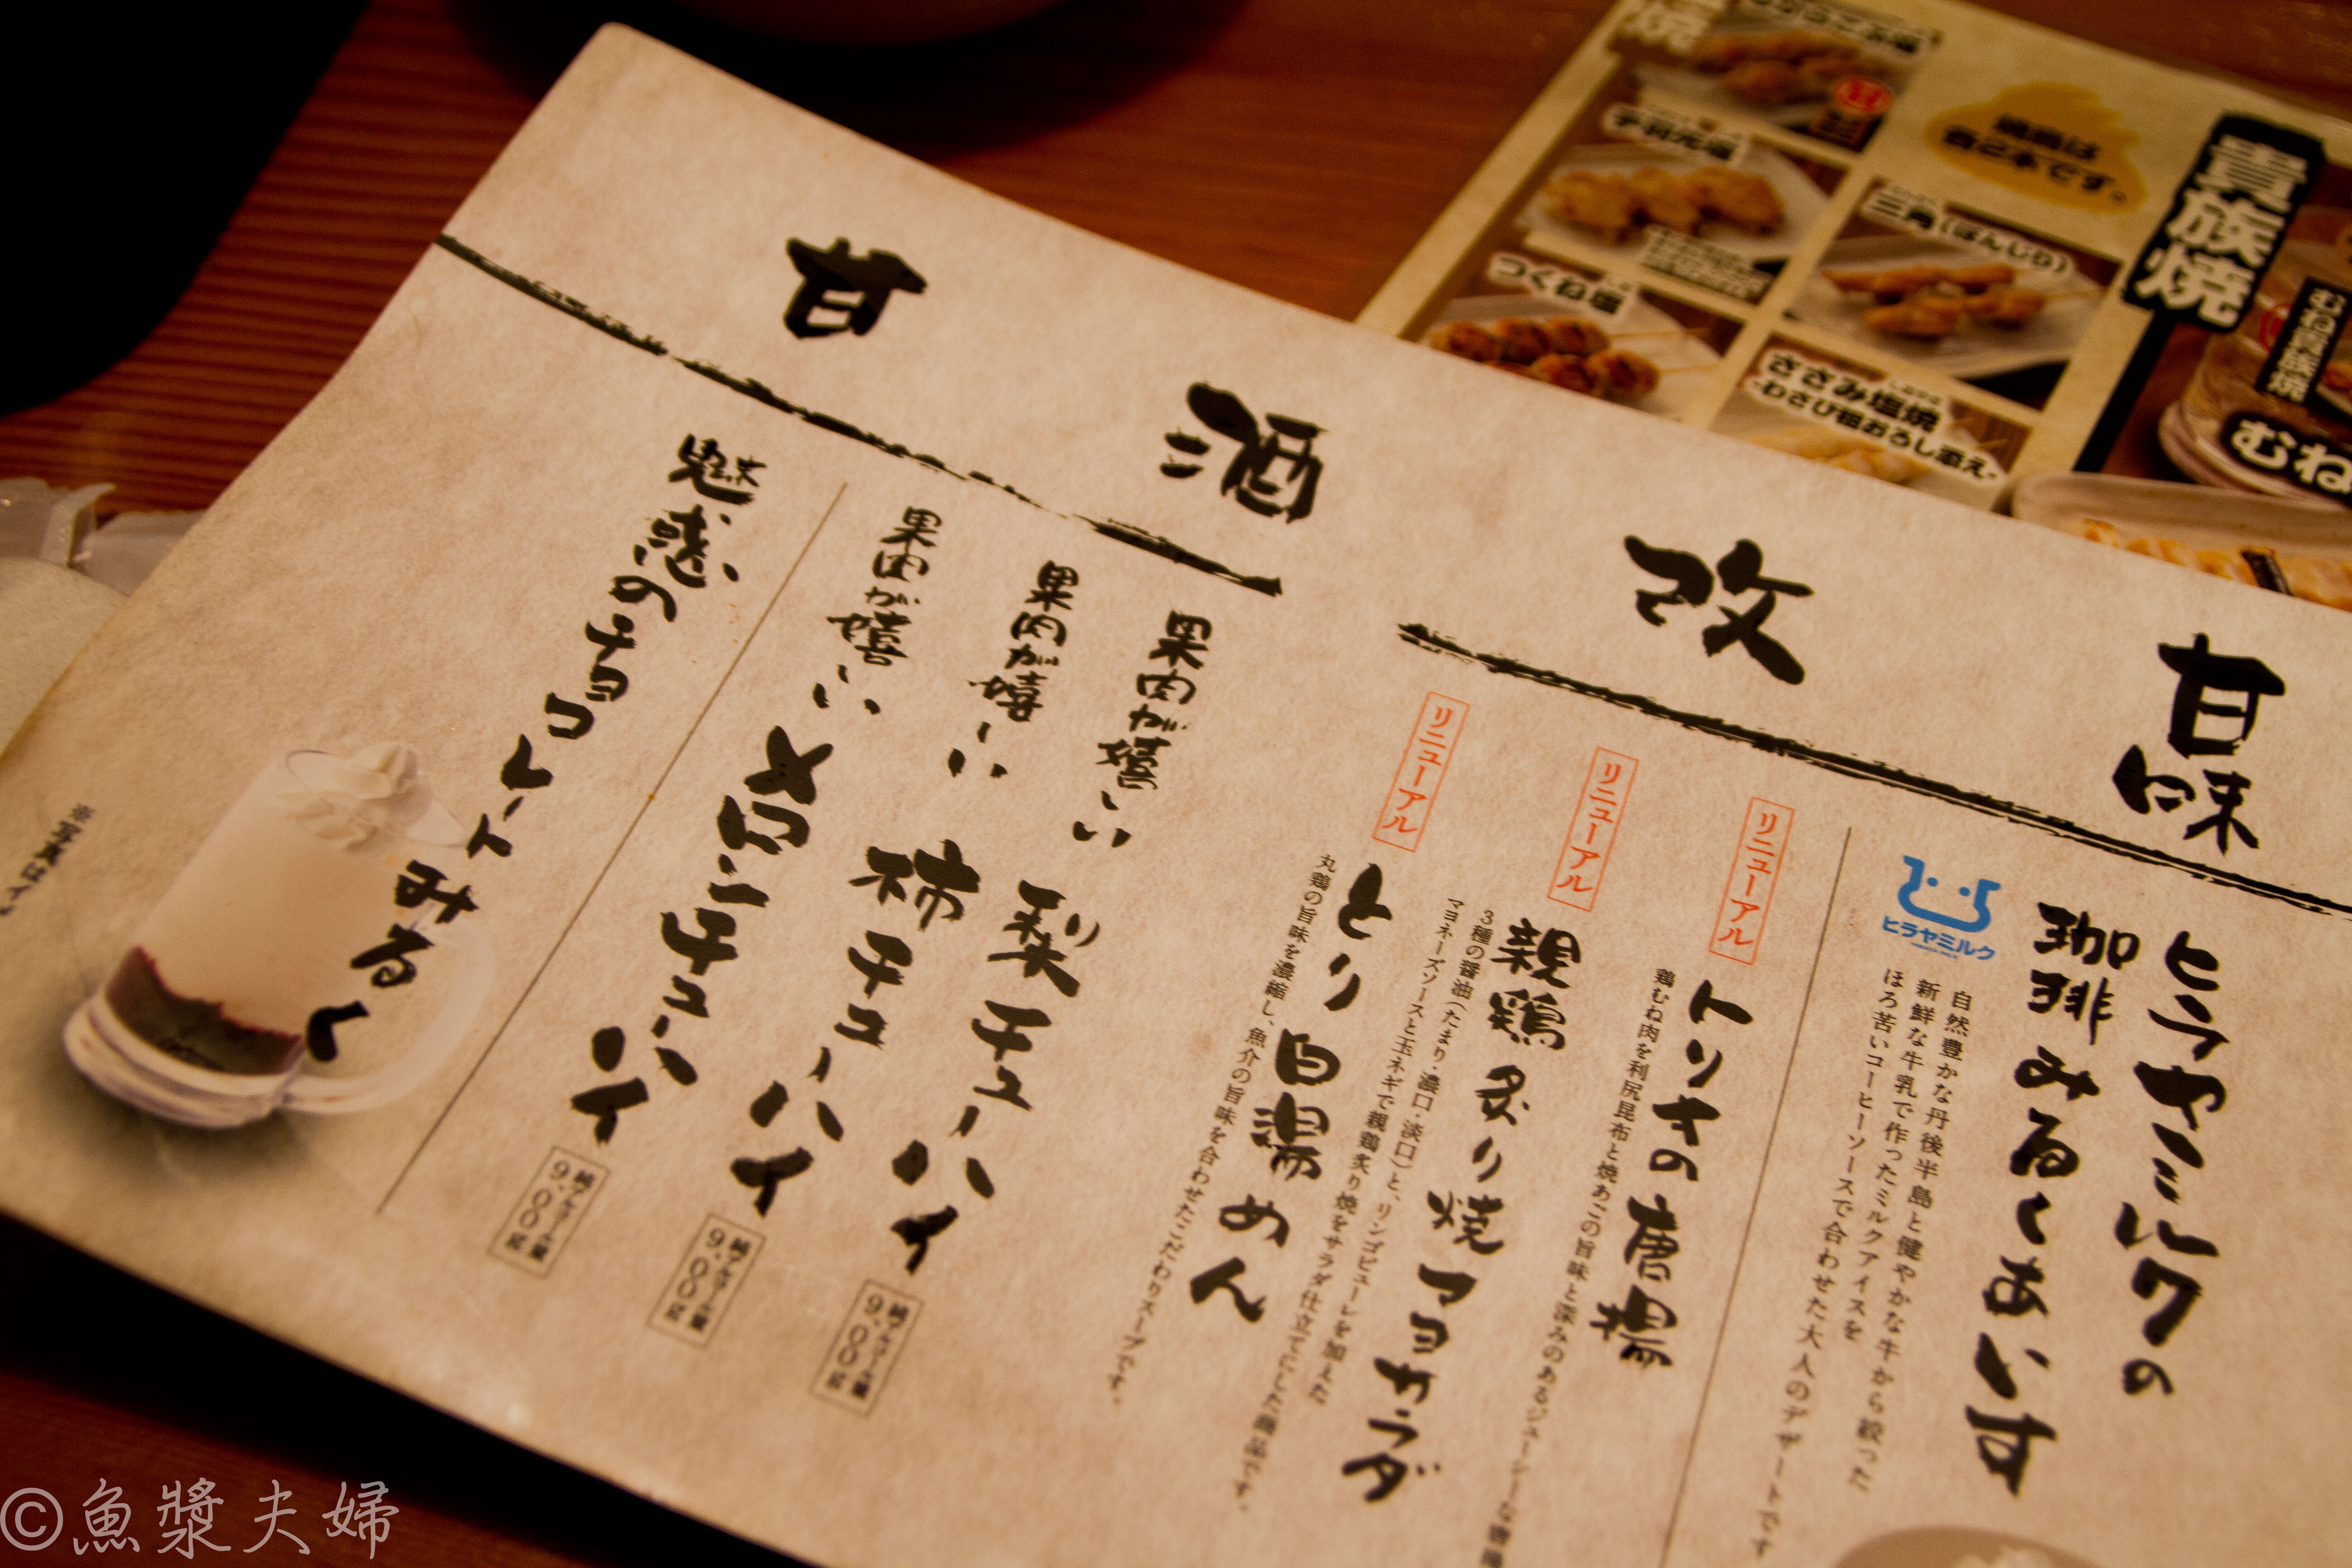 甘味
改
酒
甘
ヒラヤミルクの
珈琲みるくあいす
ヒラヤミルク
自然豊かな丹後半島と健やかな牛から絞った
新鮮な牛乳で作ったミルクアイスを
ほろ苦いコーヒーソースで合わせた大人のデザートです
リニューアル
トリキの唐揚
鶏むね肉を利尻昆布と焼あごの旨味と深みのあるジューシーな唐揚
リニューアル
親鶏炙り焼マヨサラダ
3種の醤油(たまり・濃口・淡口)と、リンゴピューレを加えた
マヨネーズソースと玉ネギで親鶏炙り焼をサラダ仕立てにした商品です。
リニューアル
とり白湯めん
丸鶏の旨味を濃縮し、魚介の旨味を合わせたこだわりスープです。
果肉が嬉しい
梨チューハイ
純アルコール量
9.00g
果肉が嬉しい
柿チューハイ
純アルコール量
9.00g
果肉が嬉しい
メロンチューハイ
純アルコール量
9.00g
魅惑のチョコレートみるく
※写真はイ
貴族焼
むね貴族焼
むね
三角(ぼんじり)
ささみ塩焼
-わさび醤おろし添え-
手羽先塩
つくね塩
焼
©魚漿夫婦